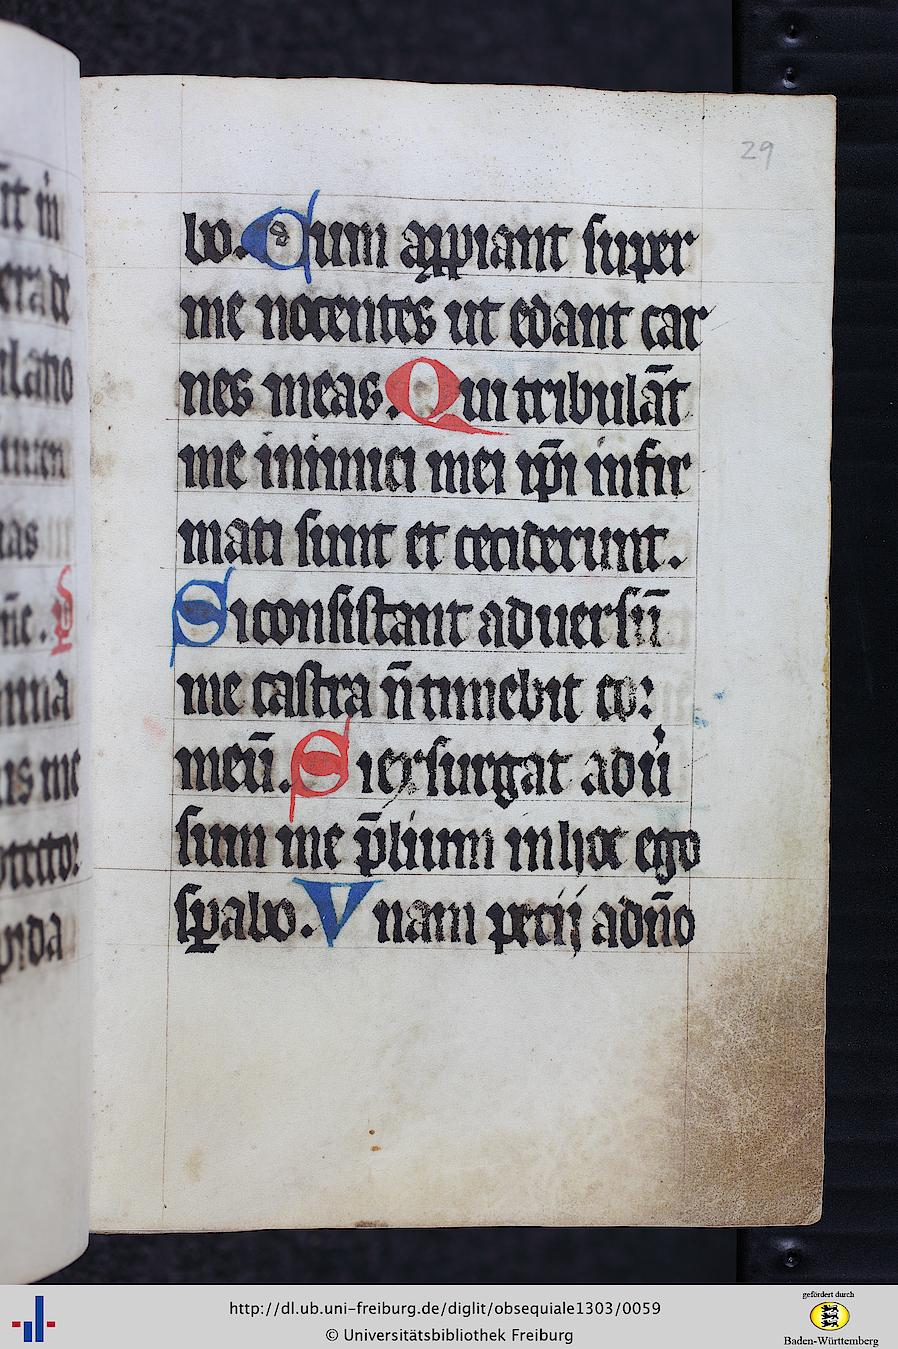 29
bo. Dum appiant super
me nocentes ut edant car
nes meas. Qui tribulāt
me inimici mei ip̄i infir
mati sunt et ceciderunt.
Si consistant aduersū
me castra n̄ timebit cor
meū. Si exsurgat adu
sum me p̄lium in hoc ego
sꝑabo. Vnam petij a dn̄o
http://dl.ub.uni-freiburg.de/diglit/obsequiale1303/0059
© Universitätsbibliothek Freiburg
gefördert durch
Baden-Württemberg